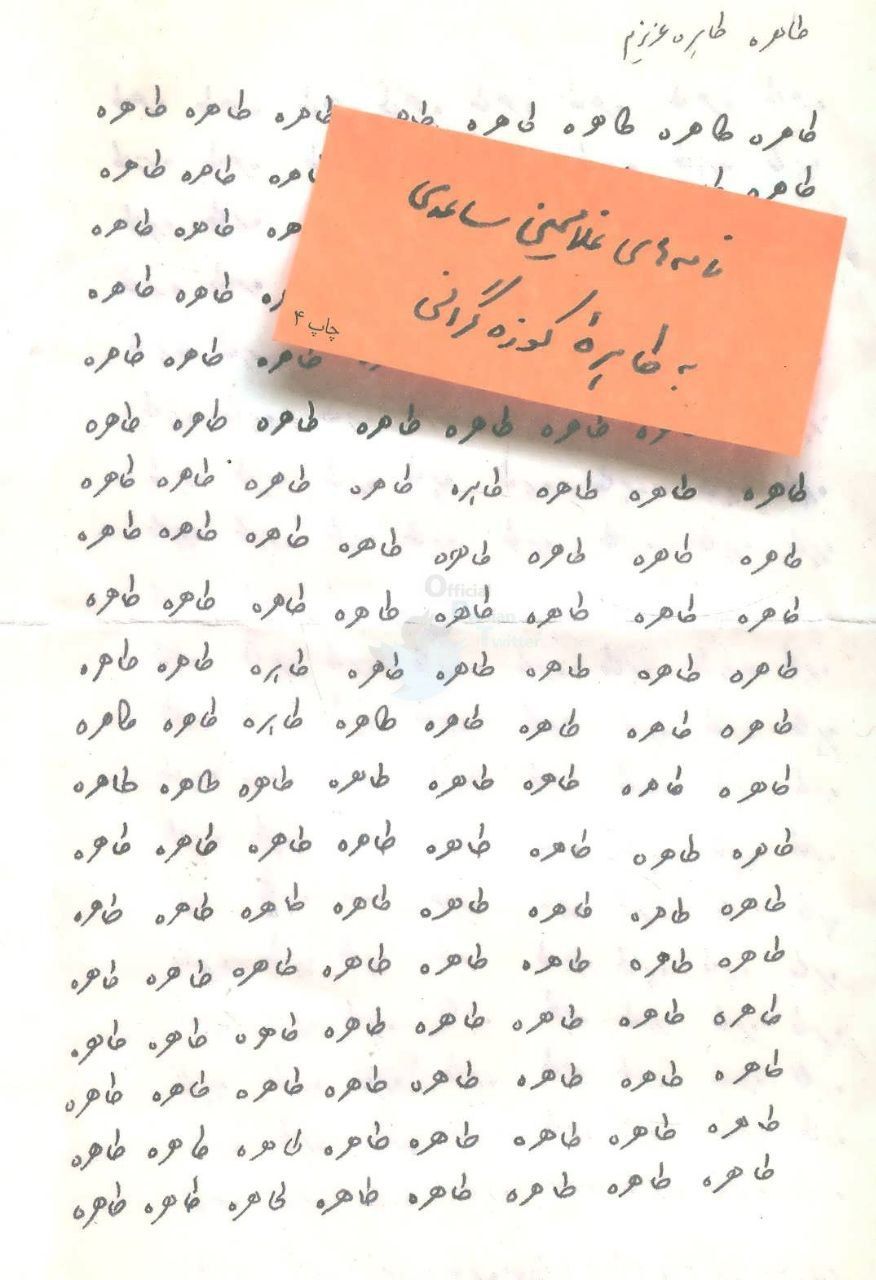 طاهره طاهره عزیزم
طاهره طاهره طاهره طاهره طاهره طاهره طاهره
طاهره طاهره طاهره
طاهره طاهره
طاهره طاهره
طاهره طاهره طاهره
طاهره طاهره طاهره طاهره طاهره طاهره
نامه‌های غلامحسین ساعدی
به طاهرهٔ کوزه‌گرانی
چاپ ۴
طاهره طاهره طاهره طاهره طاهره طاهره طاهره طاهره
طاهره طاهره طاهره طاهره طاهره طاهره طاهره طاهره
طاهره طاهره طاهره طاهره طاهره طاهره طاهره طاهره
طاهره طاهره طاهره طاهره طاهره طاهره طاهره طاهره
طاهره طاهره طاهره طاهره طاهره طاهره طاهره طاهره
طاهره طاهره طاهره طاهره طاهره طاهره طاهره طاهره
طاهره طاهره طاهره طاهره طاهره طاهره طاهره طاهره
طاهره طاهره طاهره طاهره طاهره طاهره طاهره طاهره
طاهره طاهره طاهره طاهره طاهره طاهره طاهره طاهره
طاهره طاهره طاهره طاهره طاهره طاهره طاهره طاهره
طاهره طاهره طاهره طاهره طاهره طاهره طاهره طاهره
طاهره طاهره طاهره طاهره طاهره طاهره طاهره طاهره
طاهره طاهره طاهره طاهره طاهره طاهره طاهره طاهره
Official
Twitter